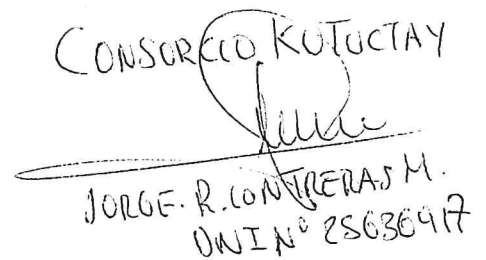 CONSORCIO KUTUCTAY
JORGE. R. CONTRERAS M.
DNI Nº 25636917